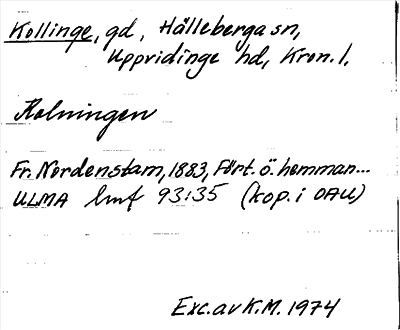 Kollinge, gd, Hälleberga sn,
Uppvidinge hd, Kron. l.
Kolningen
Fr. Nordenstam, 1883, Fört. ö. hemman...
ULMA lmf 93:35 (kop. i OAU)
Exc. av K.M. 1974